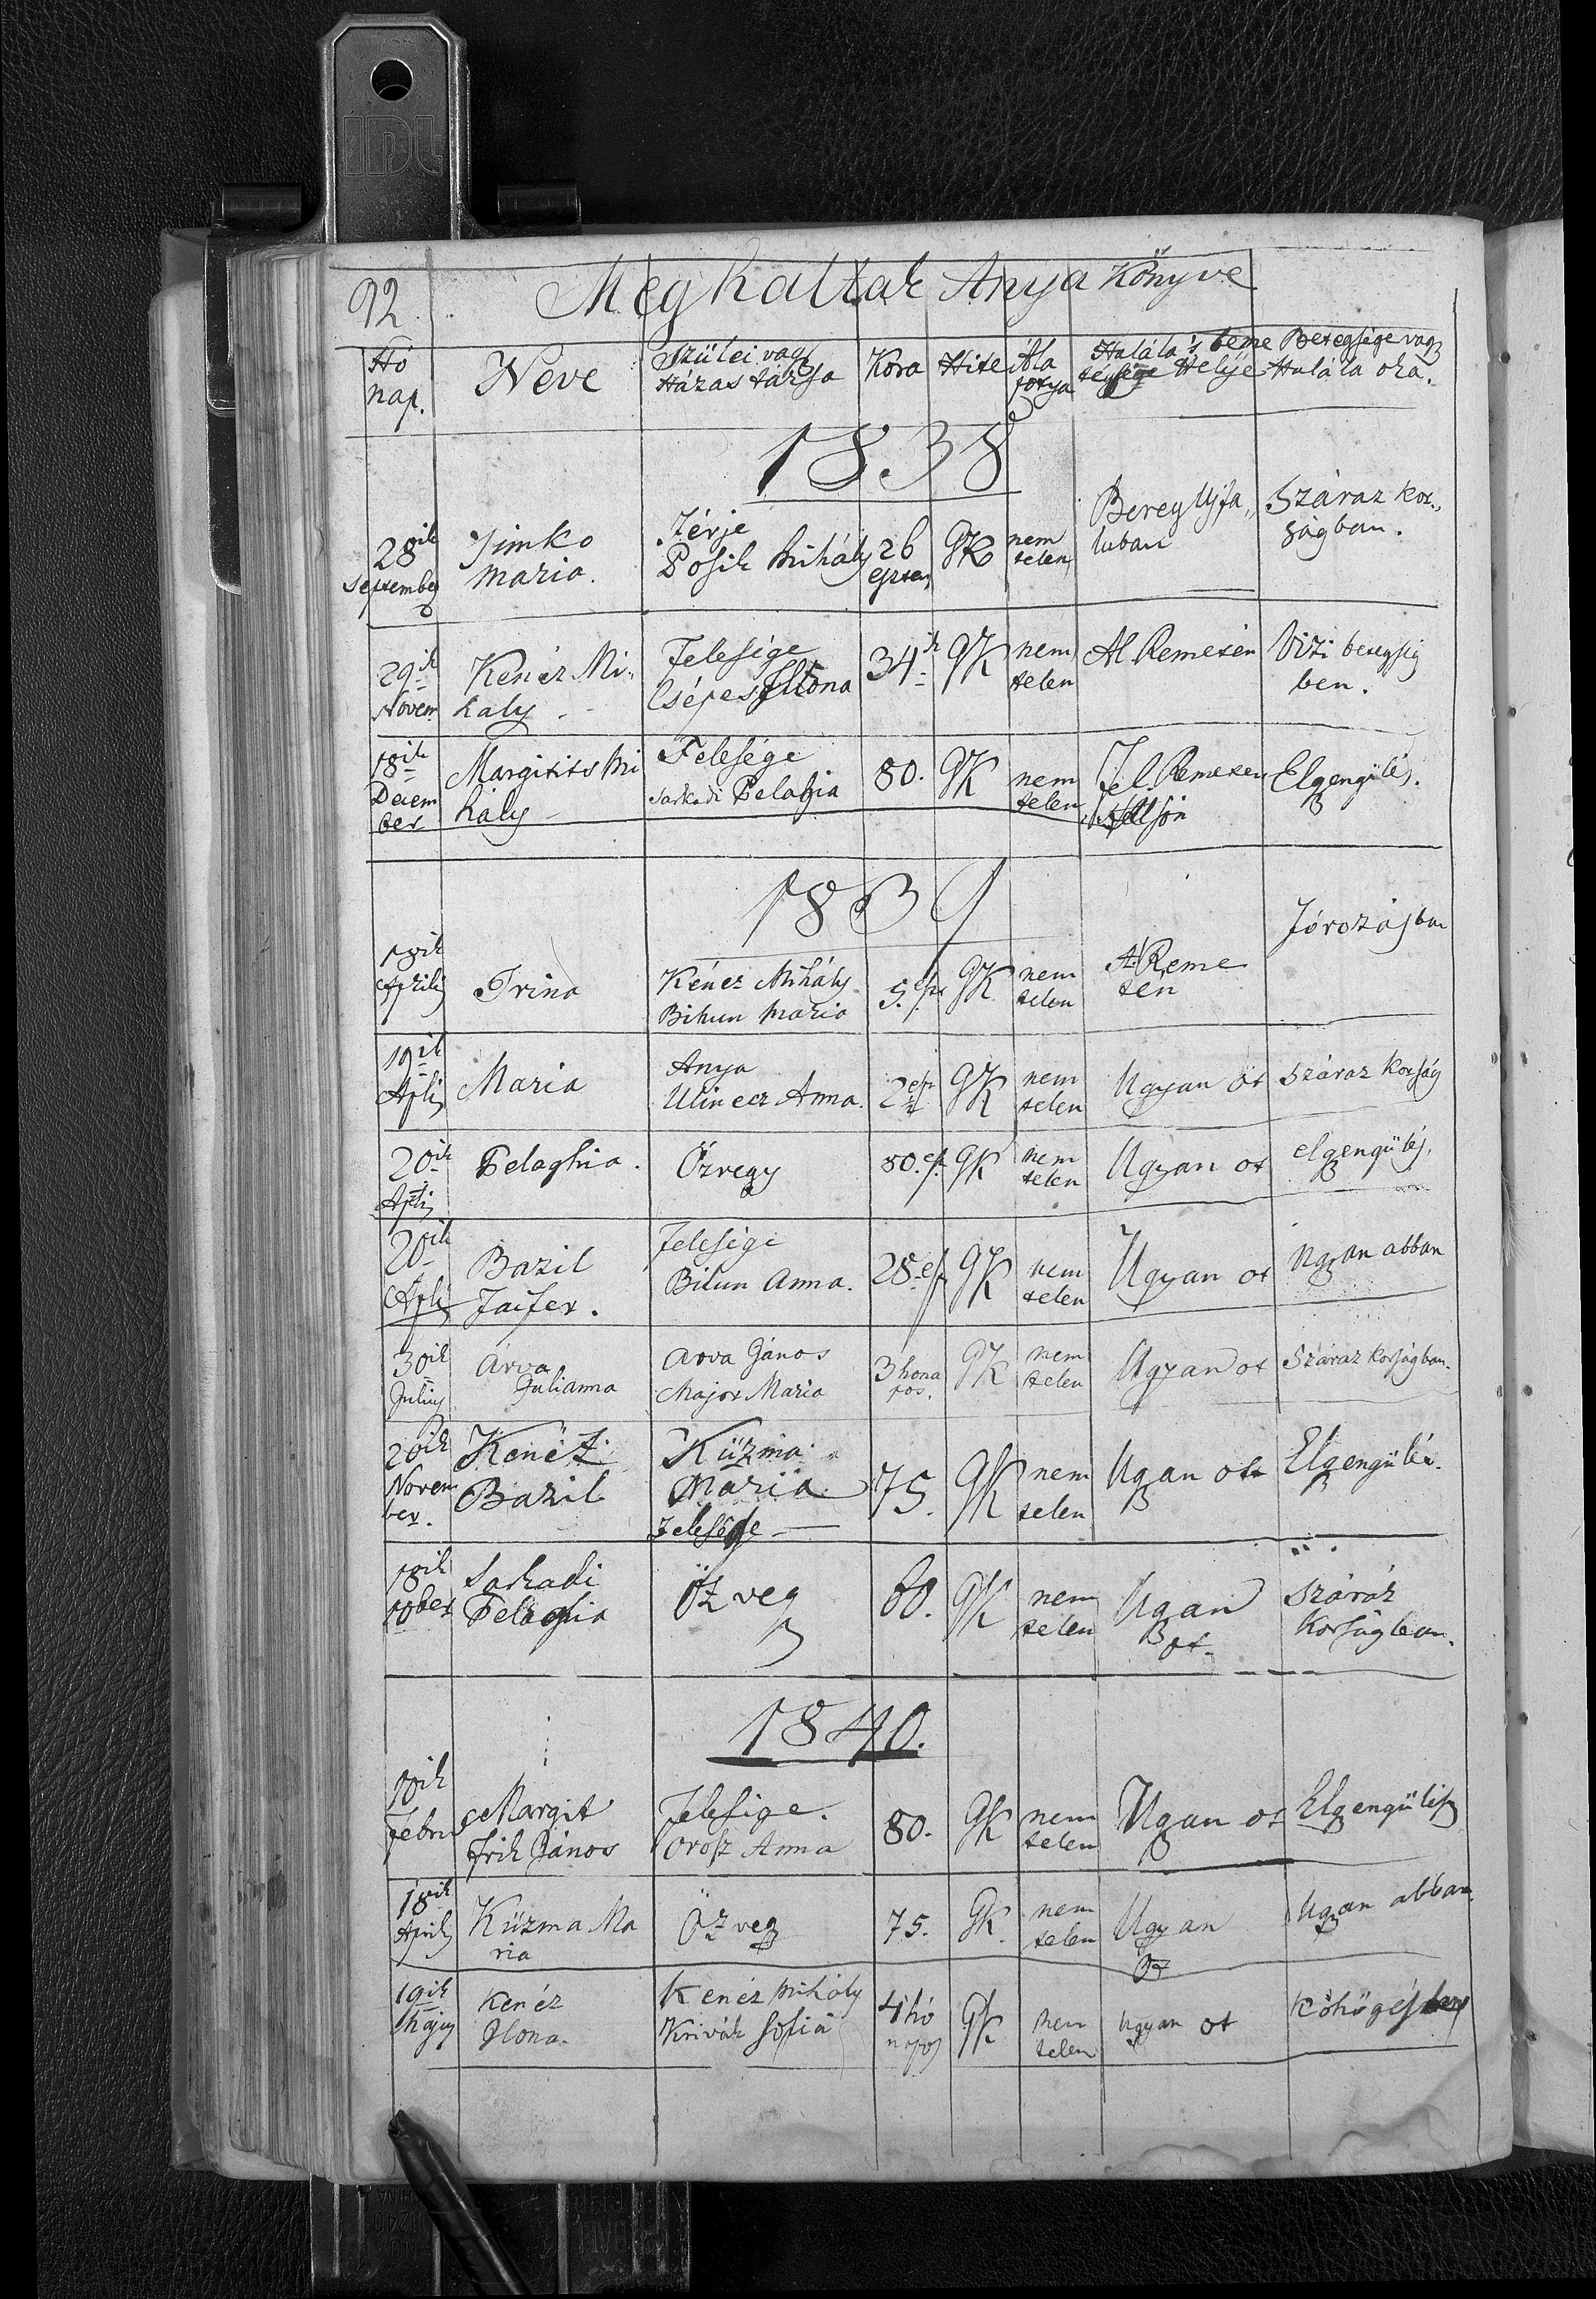 92. Meg haltak Anya Könyve
Hó nap. Neve Szülei vagy Házas társa Kora Hite Álapotya Halála 's teme Helyje Betegsége vagy Halála oka.
1838
28ik September Simko Maria. Férje Posik Mihály 26 esztens GK nem telen Bereg Ujfaluban Száraz korságban.
29ik Novem Kenéz Mihaly Felesége Csépes Ilona 34ik GK nem telen Al Remetén Vizi betegsigben.
18ik December Margitits Mihály Felesége Sarkadi Pelagia 80. GK nem telen Fel. Remeten Elgengülés.
1839
18ik Aprilis Irina Kénez Mihály Bihun Maria 5. GK nem telen A. Remeten Forozásban
19ik Apli Maria Anya Ulinecz Anna. 2 GK nem telen Ugyan ot száraz korság
20ik Apli Pelaghia. Özvegy 80. GK nem telen Ugyan ot elgengülés.
20ik Apli Bazil Felesége Bilun Anna. 28 GK nem telen Ugyan ot Ugyan abban
30ik Julius Árva Julianna Arva János Major Maria 3 hona pos. GK nem telen Ugyan ot Száraz korságban.
20ik November. Kenéz Bazil Küzma Maria Felesége 75. GK nem telen Ugyan ott Elgengülés.
18ik 10ber Sarkadi Pelaghia Özvegy 60. GK nem telen Ugyan ot. száráz Korságban.
1840.
Febru Margit frik János Felesige. Orosz Anna 80. GK nem telen Ugyan ot Elgengülés
18ik April Küzma Maria Özvegy 75. GK. nem telen Ugyan ot Ugyan abban
19ik Május Kenéz Ilona. Kenéz Mihály Krivák Sofia 4 hó napos GK nem telen Ugyan ot Köhögés